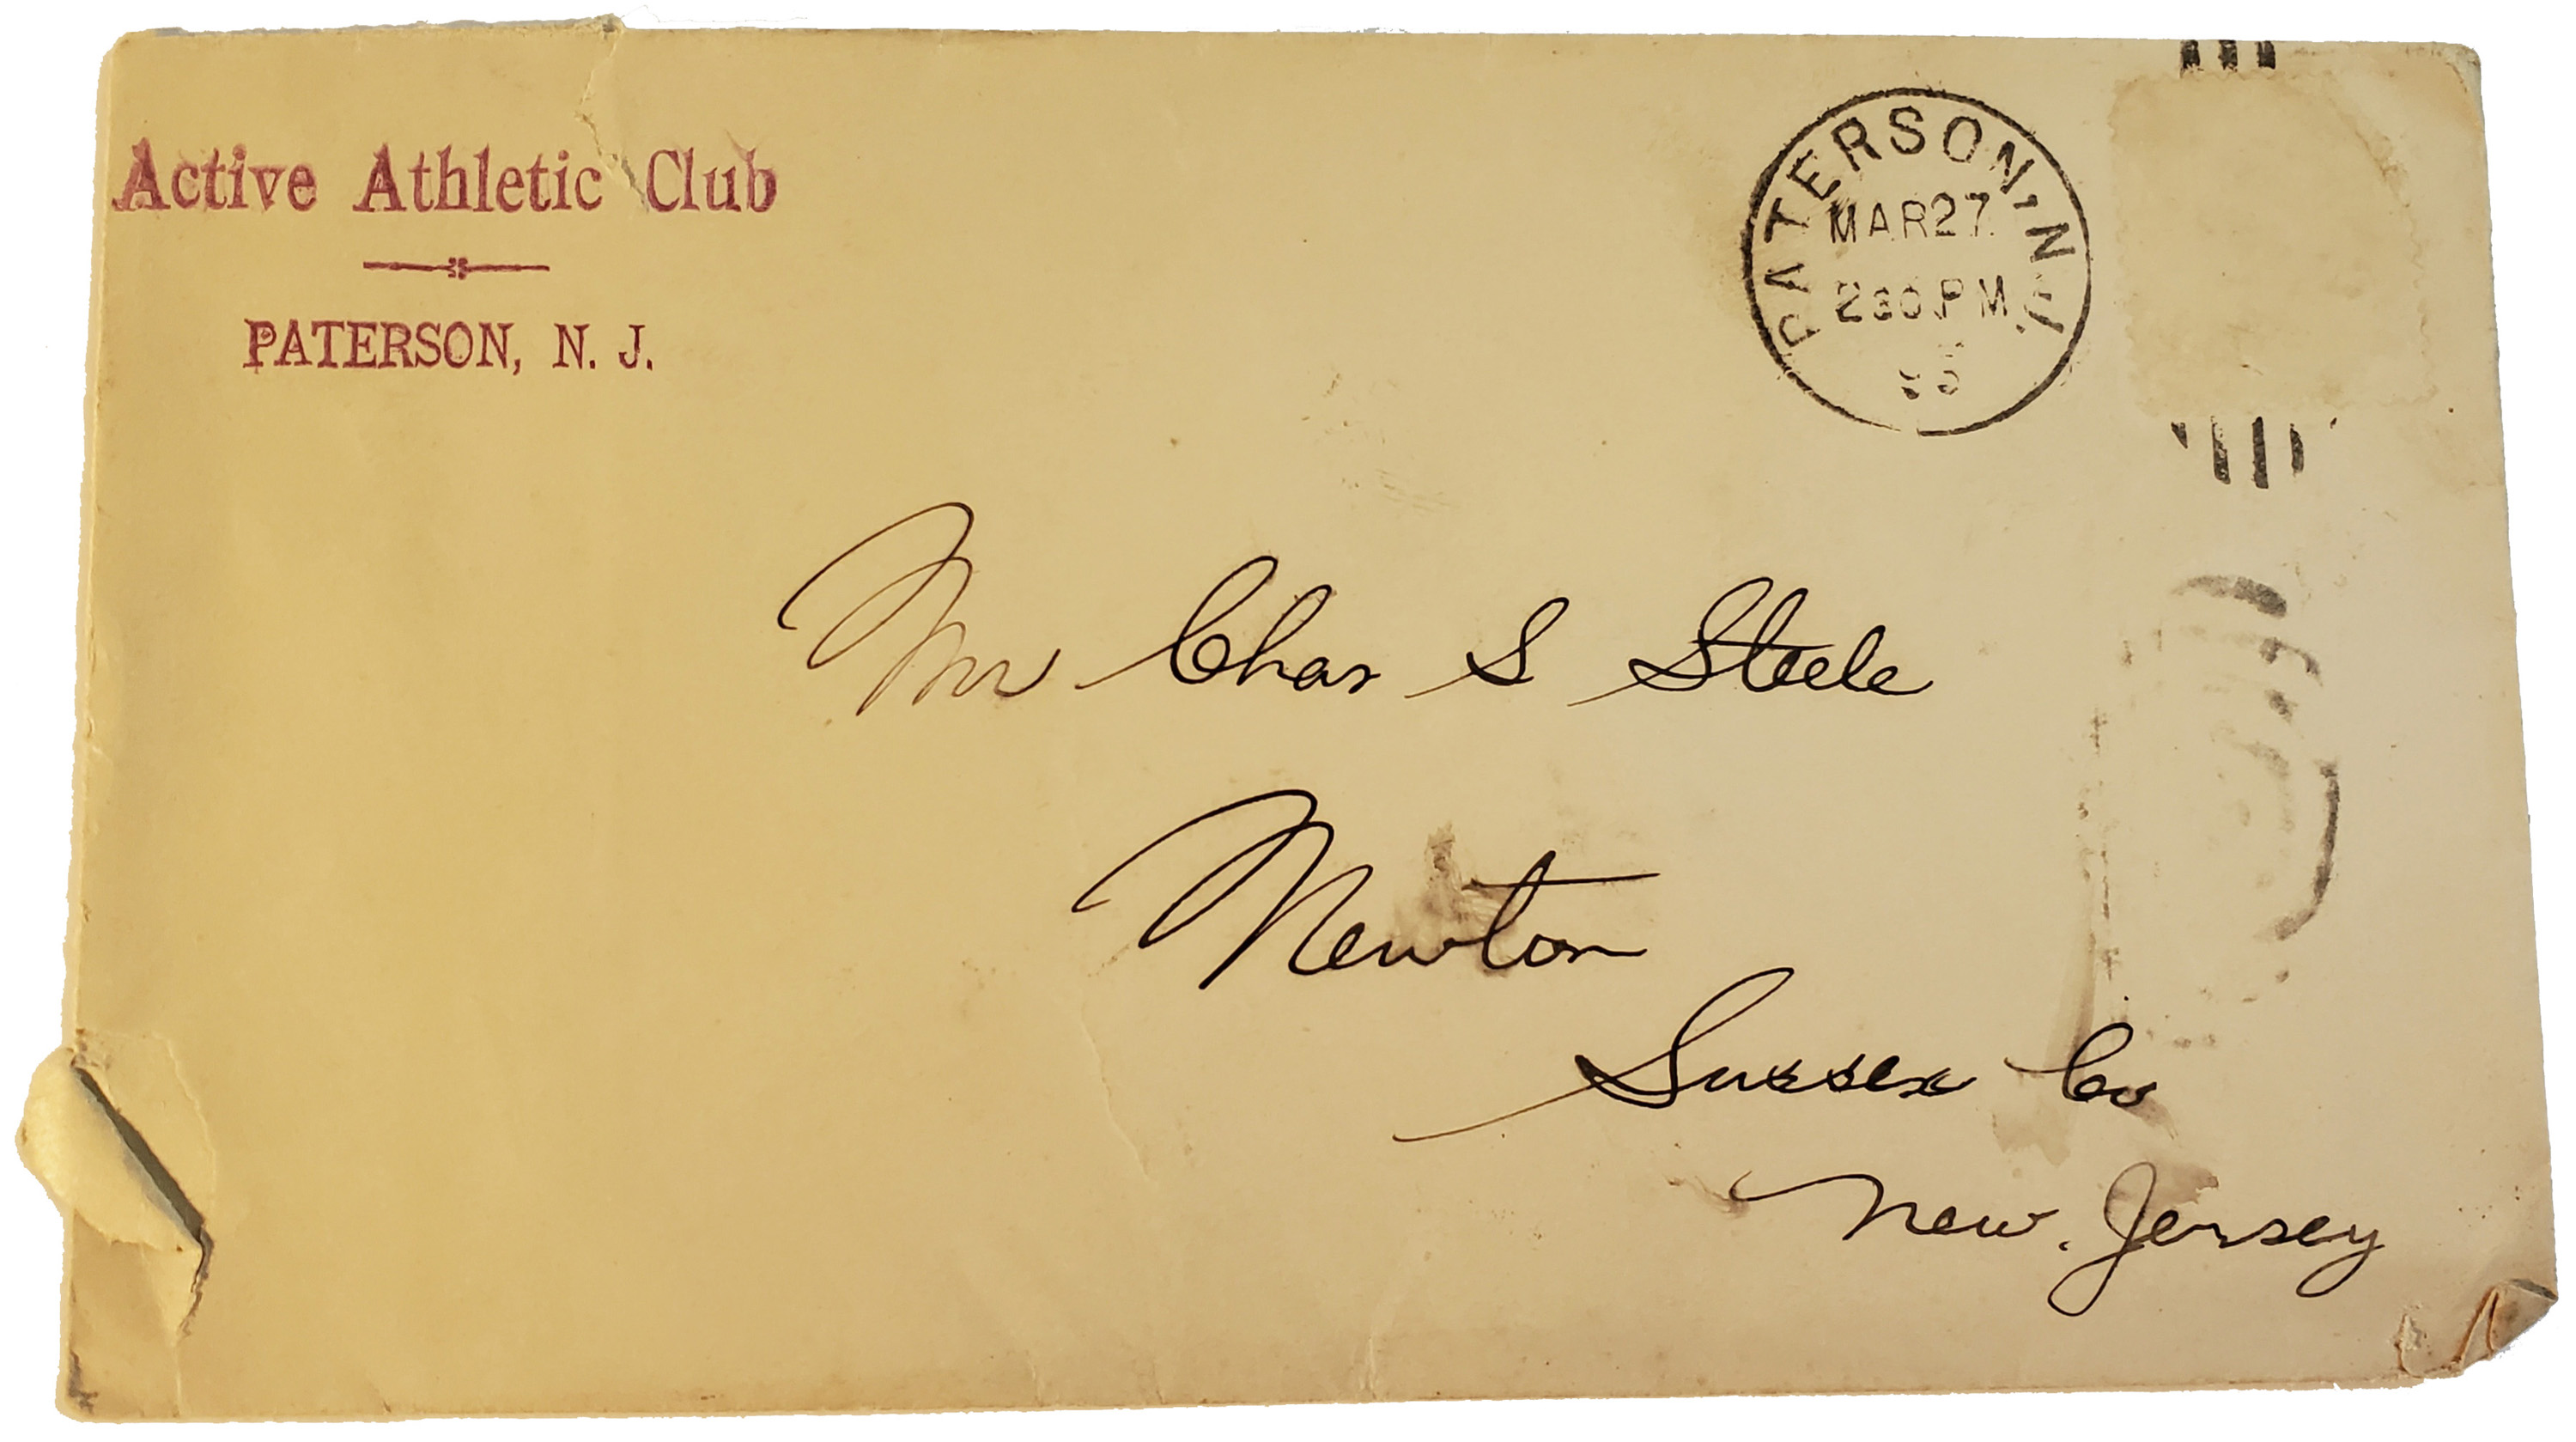 Active Athletic Club
PATERSON, N. J.
PATERSON, N.J.
MAR27
230PM
Mr Chas S Steele
Newton
Sussex Co
New. Jersey